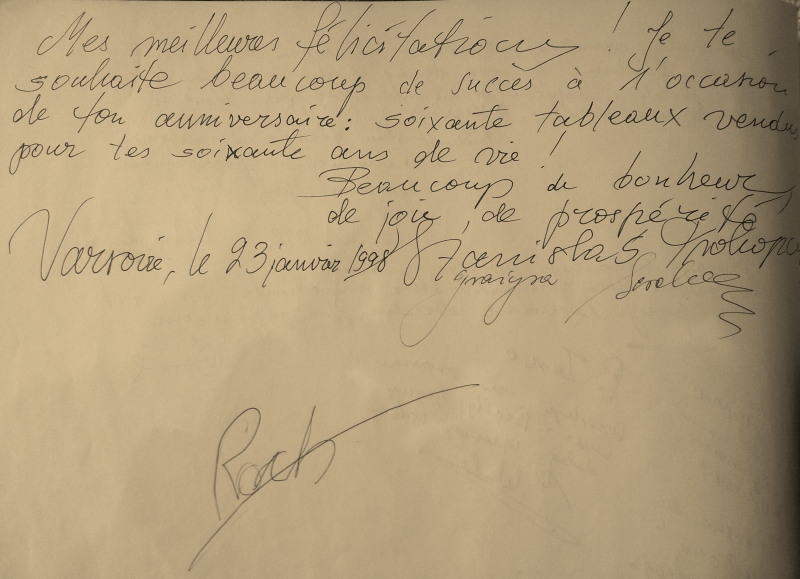 Mes meilleures félicitations ! Je te
souhaite beaucoup de succès à l'occasion
de ton anniversaire : soixante tableaux vendus
pour tes soixante ans de vie !
Beaucoup de bonheur,
de joie, de prospérité
Varsovie, le 23 janvier 1998 Stanislas